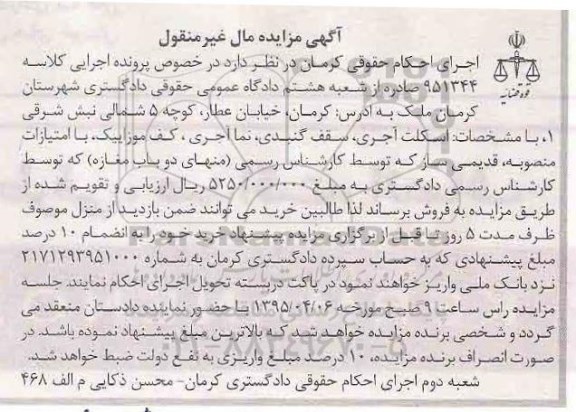 آگهی مزایده مال غیرمنقول
اجرای احکام حقوقی کرمان در نظر دارد در خصوص پرونده اجرایی کلاسه
۹۵۱۳۴۴ صادره از شعبه هشتم دادگاه عمومی حقوقی دادگستری شهرستان
کرمان ملک به آدرس: کرمان، خیابان عطار، کوچه ۵ شمالی نبش شرقی
۱، با مشخصات: اسکلت آجری، سقف گنبدی، نما آجری، کف موزاییک، با امتیازات
منصوبه، قدیمی ساز که توسط کارشناس رسمی (منهای دو باب مغازه) که توسط
کارشناس رسمی دادگستری به مبلغ ۵۲۵۰/۰۰۰/۰۰۰ ریال ارزیابی و تقویم شده از
طریق مزایده به فروش برساند لذا طالبین خرید می توانند ضمن بازدید از منزل موصوف
ظرف مدت ۵ روز تا قبل از برگزاری مزایده پیشنهاد خرید خود را به انضمام ۱۰ درصد
مبلغ پیشنهادی که به حساب سپرده دادگستری کرمان به شماره ۲۱۷۱۲۹۳۹۵۱۰۰۰
نزد بانک ملی واریز خواهند نمود در پاکت دربسته تحویل اجرای احکام نمایند. جلسه
مزایده راس ساعت ۹ صبح مورخه ۱۳۹۵/۰۴/۰۶ با حضور نماینده دادستان منعقد می
گردد و شخصی برنده مزایده خواهد شد که بالاترین مبلغ پیشنهاد نموده باشد. در
صورت انصراف برنده مزایده، ۱۰ درصد مبلغ واریزی به نفع دولت ضبط خواهد شد.
شعبه دوم اجرای احکام حقوقی دادگستری کرمان- محسن ذکایی م الف ۴۶۸
قوه قضائیه
ParsNamadData